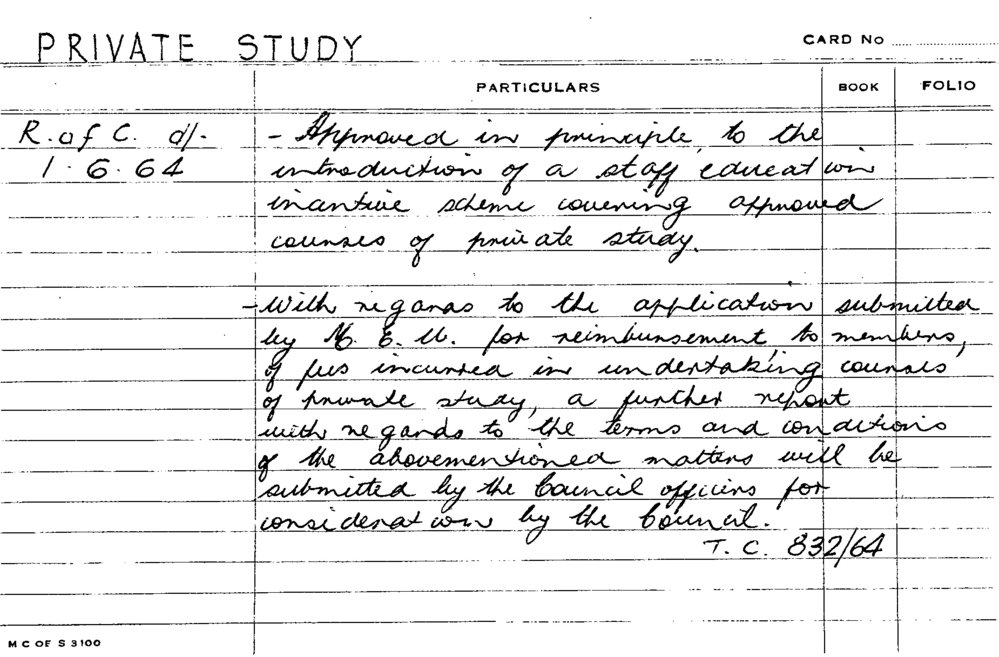 PRIVATE STUDY
CARD No
PARTICULARS BOOK FOLIO
R. of C. d/- - Approved in principle, to the
1.6.64 introduction of a staff education
incentive scheme covering approved
courses of private study.
- With regards to the application submitted
by M. E. U. for reimbursement, to members,
of fees incurred in undertaking courses
of private study, a further report
with regards to the terms and conditions
of the abovementioned matters will be
submitted by the Council officers for
consideration by the Council.
T. C. 832/64
M C OF S 3100